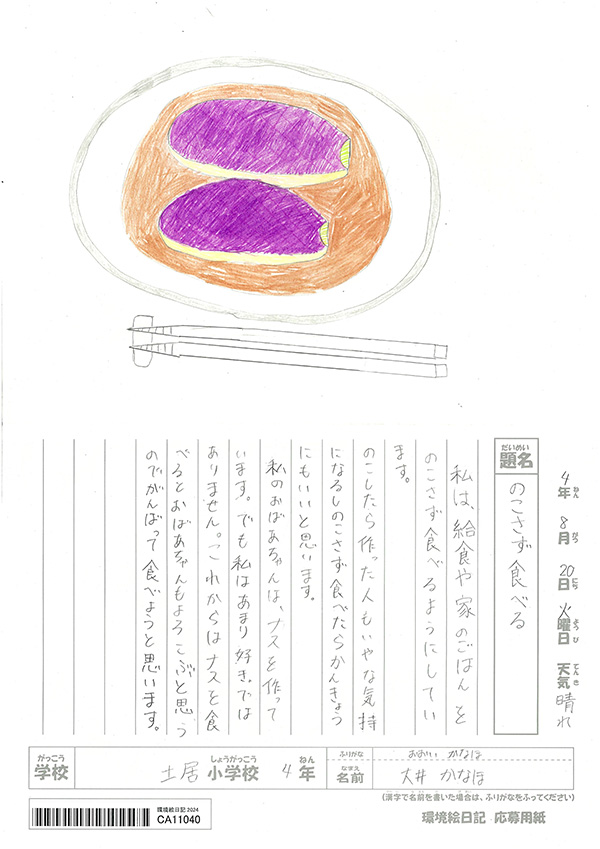 4年 8月 20日 火曜日 天気 晴れ
ねん がつ にち ようび てんき
だいめい
題名
のこさず食べる
私は、給食や家のごはんを
のこさず食べるようにしてい
ます。
のこしたら作った人もいやな気持
になるしのこさず食べたらかんきょう
にもいいと思います。
私のおばあちゃんは、ナスを作って
います。でも私はあまり好きでは
ありません。これからはナスを食
べるとおばあちゃんもよろこぶと思う
のでがんばって食べようと思います。
がっこう しょうがっこう ねん
学校 土居 小学校 4年
ふりがな おおい かなほ
なまえ
名前 大井 かなほ
(漢字で名前を書いた場合は、ふりがなをふってください)
環境絵日記 2024
CA11040
環境絵日記 応募用紙